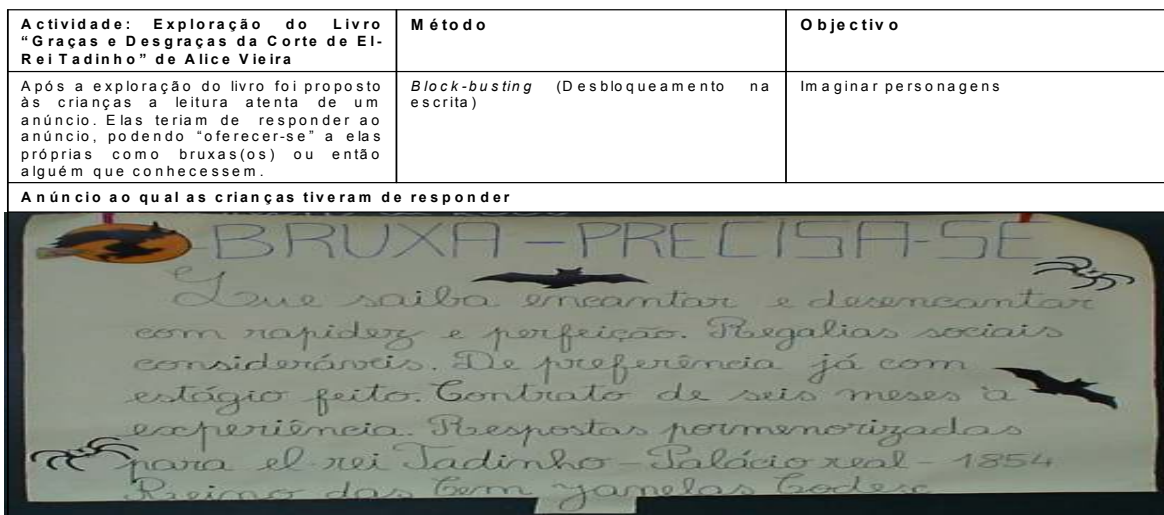 Actividade: Exploração do Livro
“Graças e Desgraças da Corte de El-
Rei Tadinho” de Alice Vieira
Método
Objectivo
Após a exploração do livro foi proposto
às crianças a leitura atenta de um
anúncio. Elas teriam de responder ao
anúncio, podendo “oferecer-se” a elas
próprias como bruxas(os) ou então
alguém que conhecessem.
Block-busting (Desbloqueamento na
escrita)
Imaginar personagens
Anúncio ao qual as crianças tiveram de responder
BRUXA - PRECISA-SE
Que saiba encantar e desencantar
com rapidez e perfeição. Regalias sociais
consideráveis. De preferência já com
estágio feito. Contrato de seis meses à
experiência. Respostas pormenorizadas
para el-rei Tadinho - Palácio real - 1854
Reino das Cem Janelas